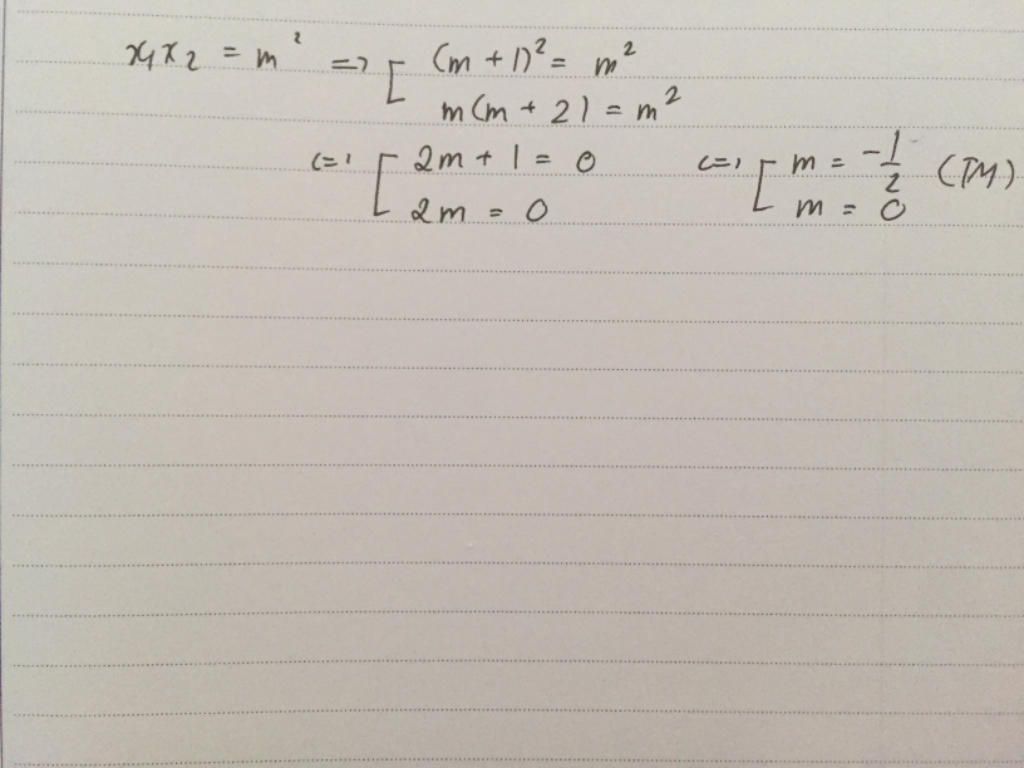 x₁x₂ = m² => [ (m + 1)² = m²
m(m + 2) = m²
<=> [ 2m + 1 = 0 <=> [ m = -1/2 (TM)
2m = 0 m = 0